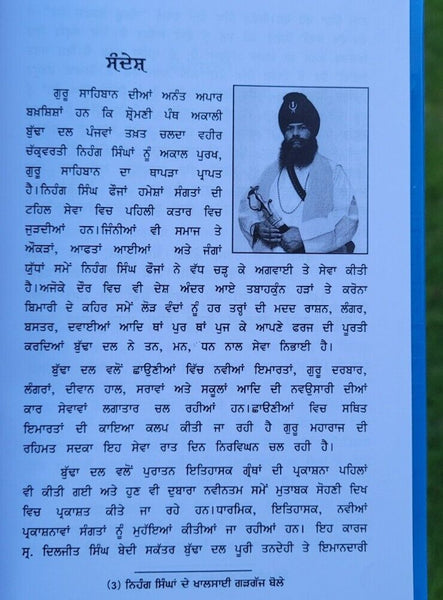 ਸੰਦੇਸ਼
ਗੁਰੂ ਸਾਹਿਬਾਨ ਦੀਆਂ ਅਨੰਤ ਅਪਾਰ
ਬਖ਼ਸ਼ਿਸ਼ਾਂ ਹਨ ਕਿ ਸ਼੍ਰੋਮਣੀ ਪੰਥ ਅਕਾਲੀ
ਬੁੱਢਾ ਦਲ ਪੰਜਵਾਂ ਤਖ਼ਤ ਚਲਦਾ ਵਹੀਰ
ਚੱਕ੍ਰਵਰਤੀ ਨਿਹੰਗ ਸਿੰਘਾਂ ਨੂੰ ਅਕਾਲ ਪੁਰਖ,
ਗੁਰੂ ਸਾਹਿਬਾਨ ਦਾ ਥਾਪੜਾ ਪ੍ਰਾਪਤ
ਹੈ।ਨਿਹੰਗ ਸਿੰਘ ਫੌਜਾਂ ਹਮੇਸ਼ਾਂ ਸੰਗਤਾਂ ਦੀ
ਟਹਿਲ ਸੇਵਾ ਵਿਚ ਪਹਿਲੀ ਕਤਾਰ ਵਿਚ
ਜੁੜਦੀਆਂ ਹਨ।ਜਿੰਨੀਆਂ ਵੀ ਸਮਾਜ ਤੇ
ਔਕੜਾਂ, ਆਫਤਾਂ ਆਈਆਂ ਅਤੇ ਜੰਗਾਂ
ਯੁੱਧਾਂ ਸਮੇਂ ਨਿਹੰਗ ਸਿੰਘ ਫੌਜਾਂ ਨੇ ਵੱਧ ਚੜ੍ਹ ਕੇ ਅਗਵਾਈ ਤੇ ਸੇਵਾ ਕੀਤੀ
ਹੈ।ਅਜੋਕੇ ਦੌਰ ਵਿਚ ਵੀ ਦੇਸ਼ ਅੰਦਰ ਆਏ ਤਬਾਹਕੁੰਨ ਹੜਾਂ ਤੇ ਕਰੋਨਾ
ਬਿਮਾਰੀ ਦੇ ਕਹਿਰ ਸਮੇਂ ਲੋੜ ਵੰਦਾਂ ਨੂੰ ਹਰ ਤਰ੍ਹਾਂ ਦੀ ਮਦਦ ਰਾਸ਼ਨ, ਲੰਗਰ,
ਬਸਤਰ, ਦਵਾਈਆਂ ਆਦਿ ਥਾਂ ਪੁਰ ਥਾਂ ਪੁਜ ਕੇ ਆਪਣੇ ਫਰਜ ਦੀ ਪੂਰਤੀ
ਕਰਦਿਆਂ ਬੁੱਢਾ ਦਲ ਨੇ ਤਨ, ਮਨ, ਧਨ ਨਾਲ ਸੇਵਾ ਨਿਭਾਈ ਹੈ।
ਬੁੱਢਾ ਦਲ ਵਲੋਂ ਛਾਉਣੀਆਂ ਵਿੱਚ ਨਵੀਆਂ ਇਮਾਰਤਾਂ, ਗੁਰੂ ਦਰਬਾਰ,
ਲੰਗਰਾਂ, ਦੀਵਾਨ ਹਾਲ, ਸਰਾਵਾਂ ਅਤੇ ਸਕੂਲਾਂ ਆਦਿ ਦੀ ਨਵਉਸਾਰੀ ਦੀਆਂ
ਕਾਰ ਸੇਵਾਵਾਂ ਲਗਾਤਾਰ ਚਲ ਰਹੀਆਂ ਹਨ।ਛਾਉਣੀਆਂ ਵਿਚ ਸਥਿਤ
ਇਮਾਰਤਾਂ ਦੀ ਕਾਇਆ ਕਲਪ ਕੀਤੀ ਜਾ ਰਹੀ ਹੈ ਗੁਰੂ ਮਹਾਰਾਜ ਦੀ
ਰਹਿਮਤ ਸਦਕਾ ਇਹ ਸੇਵਾ ਰਾਤ ਦਿਨ ਨਿਰਵਿਘਨ ਚਲ ਰਹੀ ਹੈ।
ਬੁੱਢਾ ਦਲ ਵਲੋਂ ਪੁਰਾਤਨ ਇਤਿਹਾਸਕ ਗ੍ਰੰਥਾਂ ਦੀ ਪ੍ਰਕਾਸ਼ਨਾ ਪਹਿਲਾਂ
ਵੀ ਕੀਤੀ ਗਈ ਅਤੇ ਹੁਣ ਵੀ ਦੁਬਾਰਾ ਨਵੀਨਤਮ ਸਮੇਂ ਮੁਤਾਬਕ ਸੋਹਣੀ ਦਿਖ
ਵਿਚ ਪ੍ਰਕਾਸ਼ਤ ਕੀਤੇ ਜਾ ਰਹੇ ਹਨ।ਧਾਰਮਿਕ, ਇਤਿਹਾਸਕ, ਨਵੀਆਂ
ਪ੍ਰਕਾਸ਼ਨਾਵਾਂ ਸੰਗਤਾਂ ਨੂੰ ਮੁਹੱਇਆਂ ਕੀਤੀਆਂ ਜਾ ਰਹੀਆਂ ਹਨ। ਇਹ ਕਾਰਜ
ਸ੍ਰ. ਦਿਲਜੀਤ ਸਿੰਘ ਬੇਦੀ ਸਕੱਤਰ ਬੁੱਢਾ ਦਲ ਪੂਰੀ ਤਨਦੇਹੀ ਤੇ ਇਮਾਨਦਾਰੀ
(3) ਨਿਹੰਗ ਸਿੰਘਾਂ ਦੇ ਖਾਲਸਾਈ ਗੜਗੱਜ ਬੋਲੇ